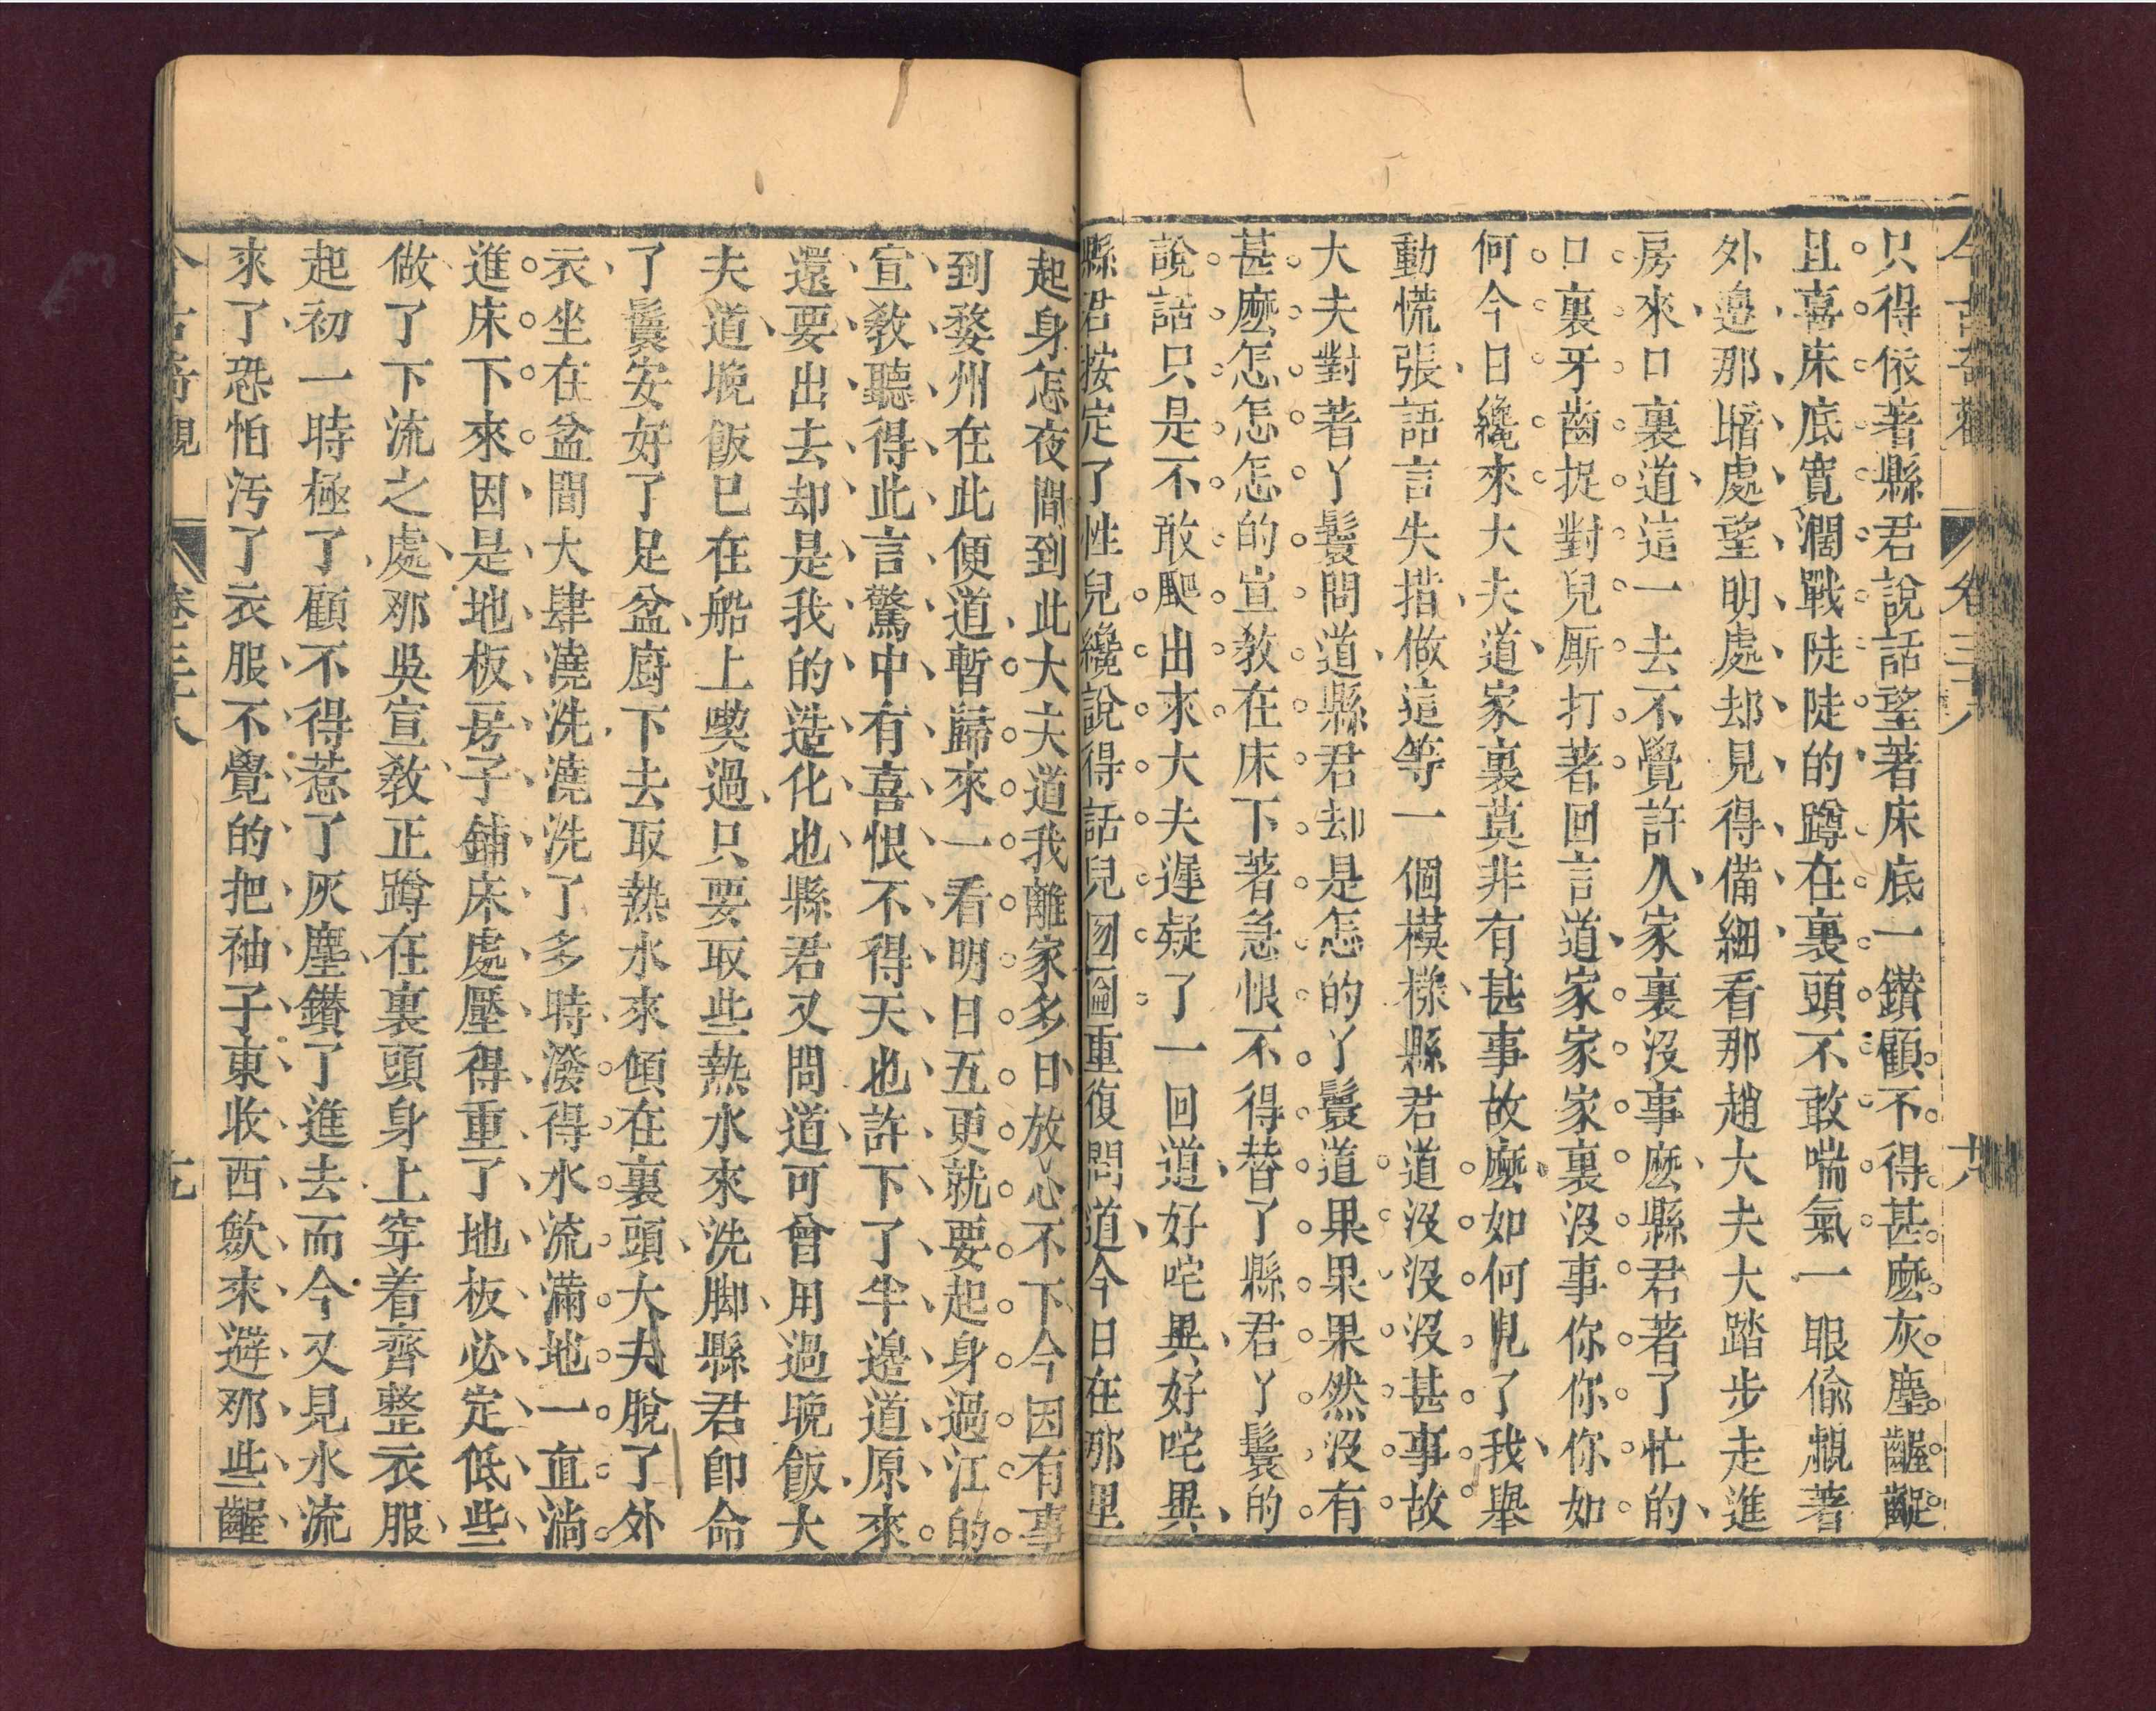 今古奇觀 卷三十八 十八
只得依著縣君說話望著床底一鑽顧不得甚麽灰塵齷齪
且喜床底寬濶戰陡陡的蹲在裏頭不敢喘氣一眼偷覷著
外邉那暗處望明處却見得備細看那趙大夫大踏步走進
房來口裏道這一去不覺許久家裏沒事麽縣君著了忙的
口裏牙齒捉對兒厮打著回言道家家家裏沒事你你你如
何今日纔來大夫道家裏莫非有甚事故麽如何見了我舉
動慌張語言失措做這等一個模様縣君道沒沒沒甚事故
大夫對著丫鬟問道縣君却是怎的丫鬟道果果果然沒有
甚麽怎怎怎的宣教在床下著急恨不得替了縣君丫鬟的
說話只是不敢颺出來大夫遲疑了一回道好咤異好咤異
縣君按定了性兒纔說得話兒囫圇重復問道今日在那里
起身怎夜間到此大夫道我離家多日放心不下今因有事
到婺州在此便道暫歸來一看明日五更就要起身過江的
宣教聽得此言驚中有喜恨不得天也許下了半邉道原來
還要出去却是我的造化也縣君又問道可曾用過晚飯大
夫道晚飯已在船上喫過只要取些熱水來洗脚縣君卽命
了鬟安好了足盆廚下去取熱水來傾在裏頭大夫脫了外
衣坐在盆間大肆澆洗澆洗了多時潑得水流滿地一直淌
進床下來因是地板房子鋪床處壓得重了地板必定低些
做了下流之處那吳宣教正蹲在裏頭身上穿着齊整衣服
起初一時極了顧不得惹了灰塵鑽了進去而今又見水流
來了恐怕汚了衣服不覺的把袖子東收西斂來避那些齷
今古奇觀 卷三十八 九